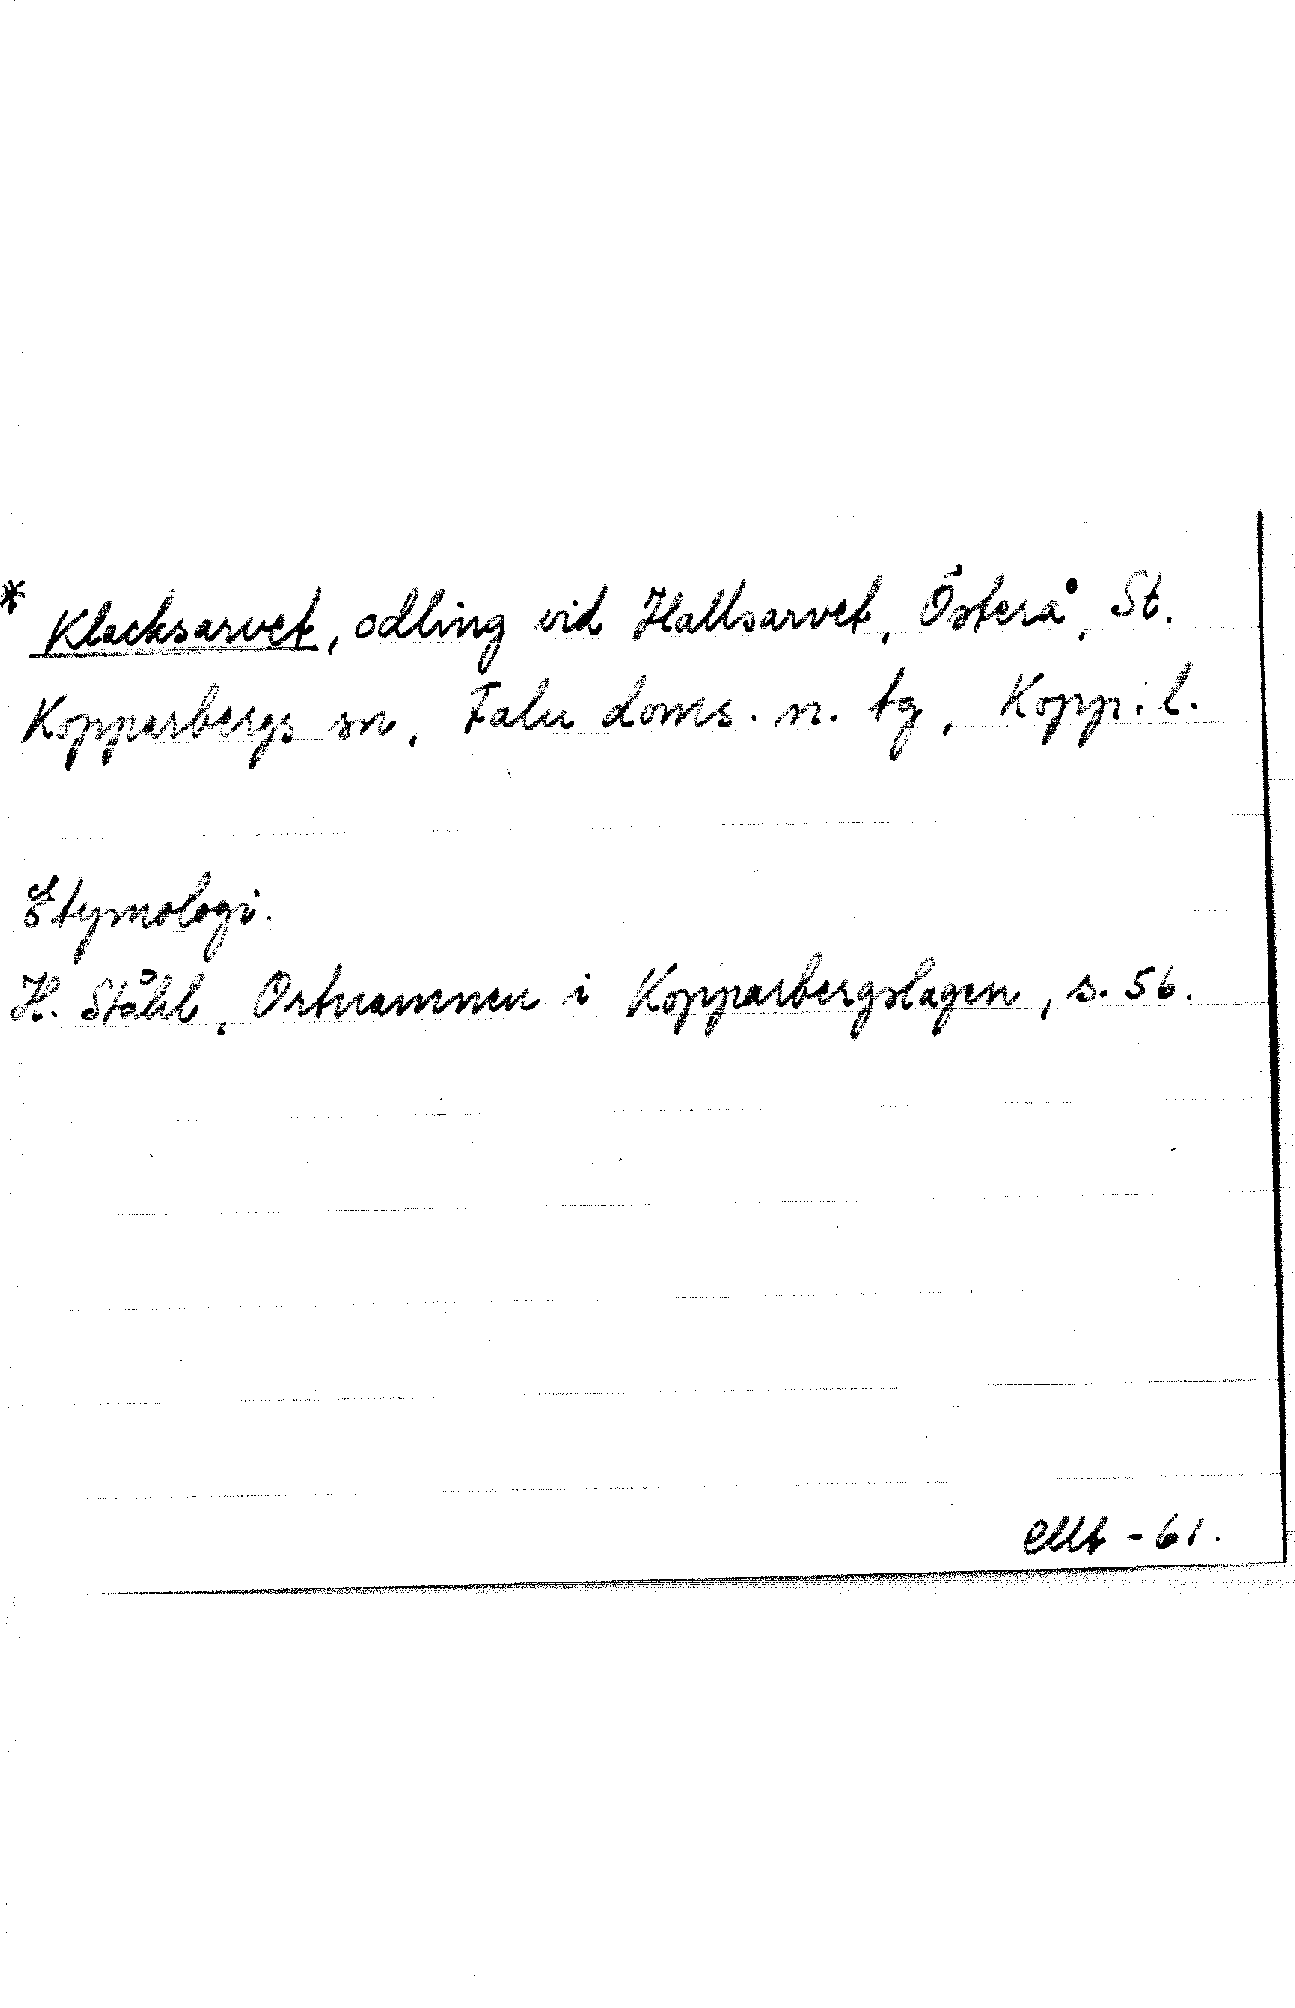 * Klacksarvet, odling vid Hallsarvet, Österå, St.
Kopparbergs sn, Falu doms. n. tg, Kopp. l.
Etymologi.
H. Ståhl, Ortnamnen i Kopparbergslagen, s. 56.
-61.